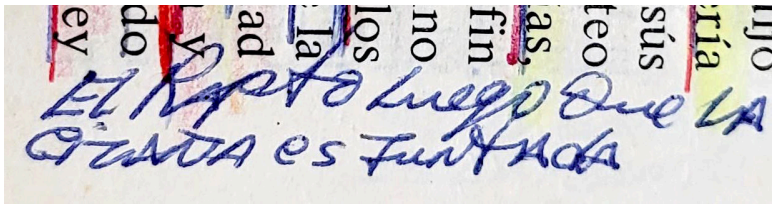 ey
do
y
ad
la
los
no
fin
as,
teo
sús
ría
ijo
El Rapto Luego Que LA
CizAÑA es JuntAdA